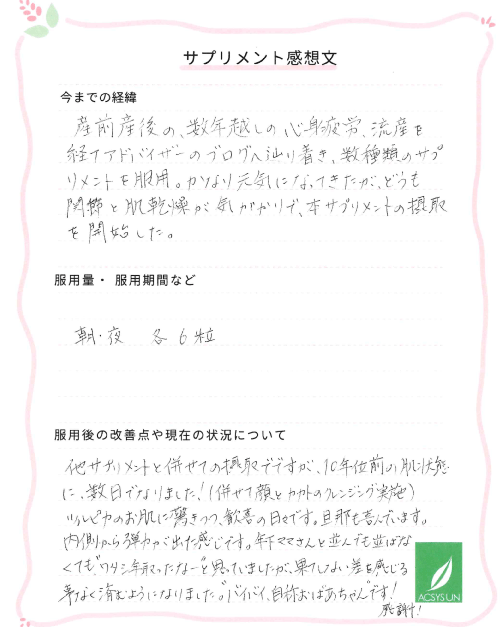 サプリメント感想文
今までの経緯
産前産後の、数年越しの心身疲労、流産を
経てアドバイザーのブログへ辿り着き、数種類のサプ
リメントを服用。かなり元気になってきたが、どうも
関節と肌乾燥が気がかりで、本サプリメントの摂取
を開始した。
服用量・服用期間など
朝・夜 各6粒
服用後の改善点や現在の状況について
他サプリメントと併せての摂取でですが、10年位前の肌状態
に、数日でなりました！(併せて顔とカカトのクレンジング実施)
ツルピカのお肌に驚きつつ、歓喜の日々です。旦那も喜んでいます。
内側から弾力が出た感じです。年下ママさんと並んでも並ばな
くても、"ワタシ年取ったなー"と思っていましたが、果てしない差を感じる
事なく済むようになりました。"バイバイ、自称おばあちゃん"です！
感謝！
ACSYSUN